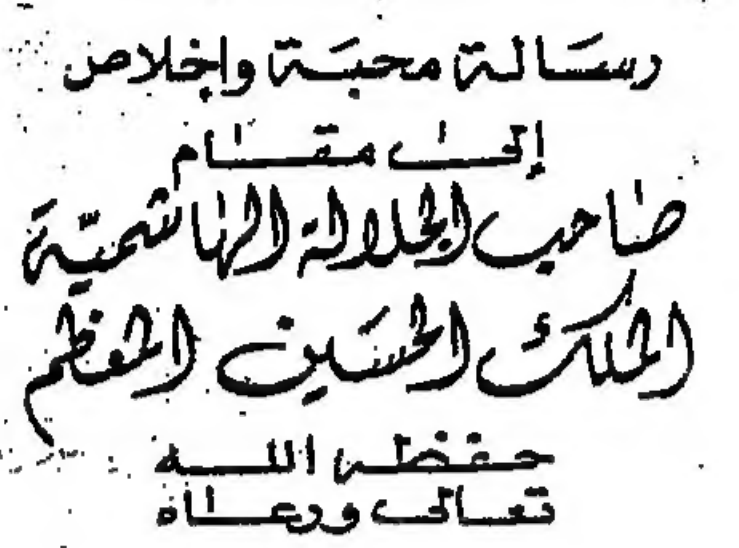 رسالة محبة وإخلاص
إلى مقام
صاحب الجلالة الهاشمية
الملك الحسين المعظم
حفظه الله
تعالى ورعاه